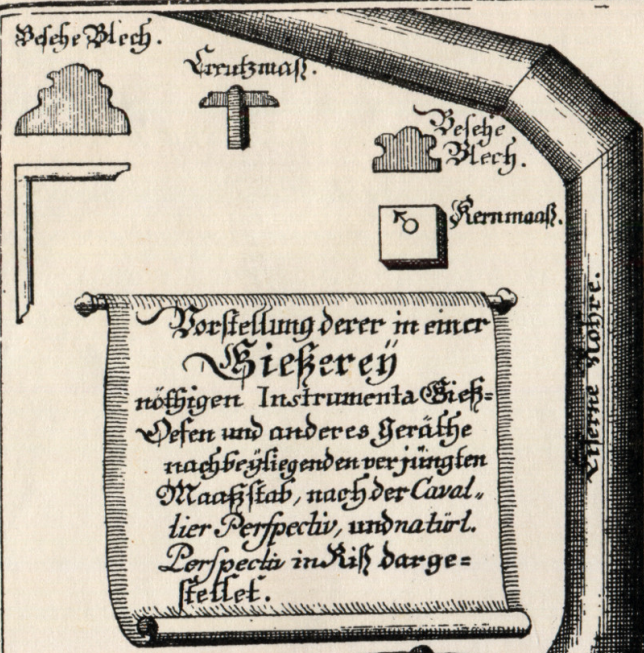 Besehe Blech.
Creutzmaß.
Besehe
Blech.
Kernmaaß.
Eiserne Röhre.
Vorstellung derer in einer
Gießereÿ
nöthigen Instrumenta Gieß=
Oefen und anderes Geräthe
nach beÿliegenden verjüngten
Maaßstab, nach der Caval=
lier Perspectiv, und natürl.
Perspectiv in Riß darge=
stellet.